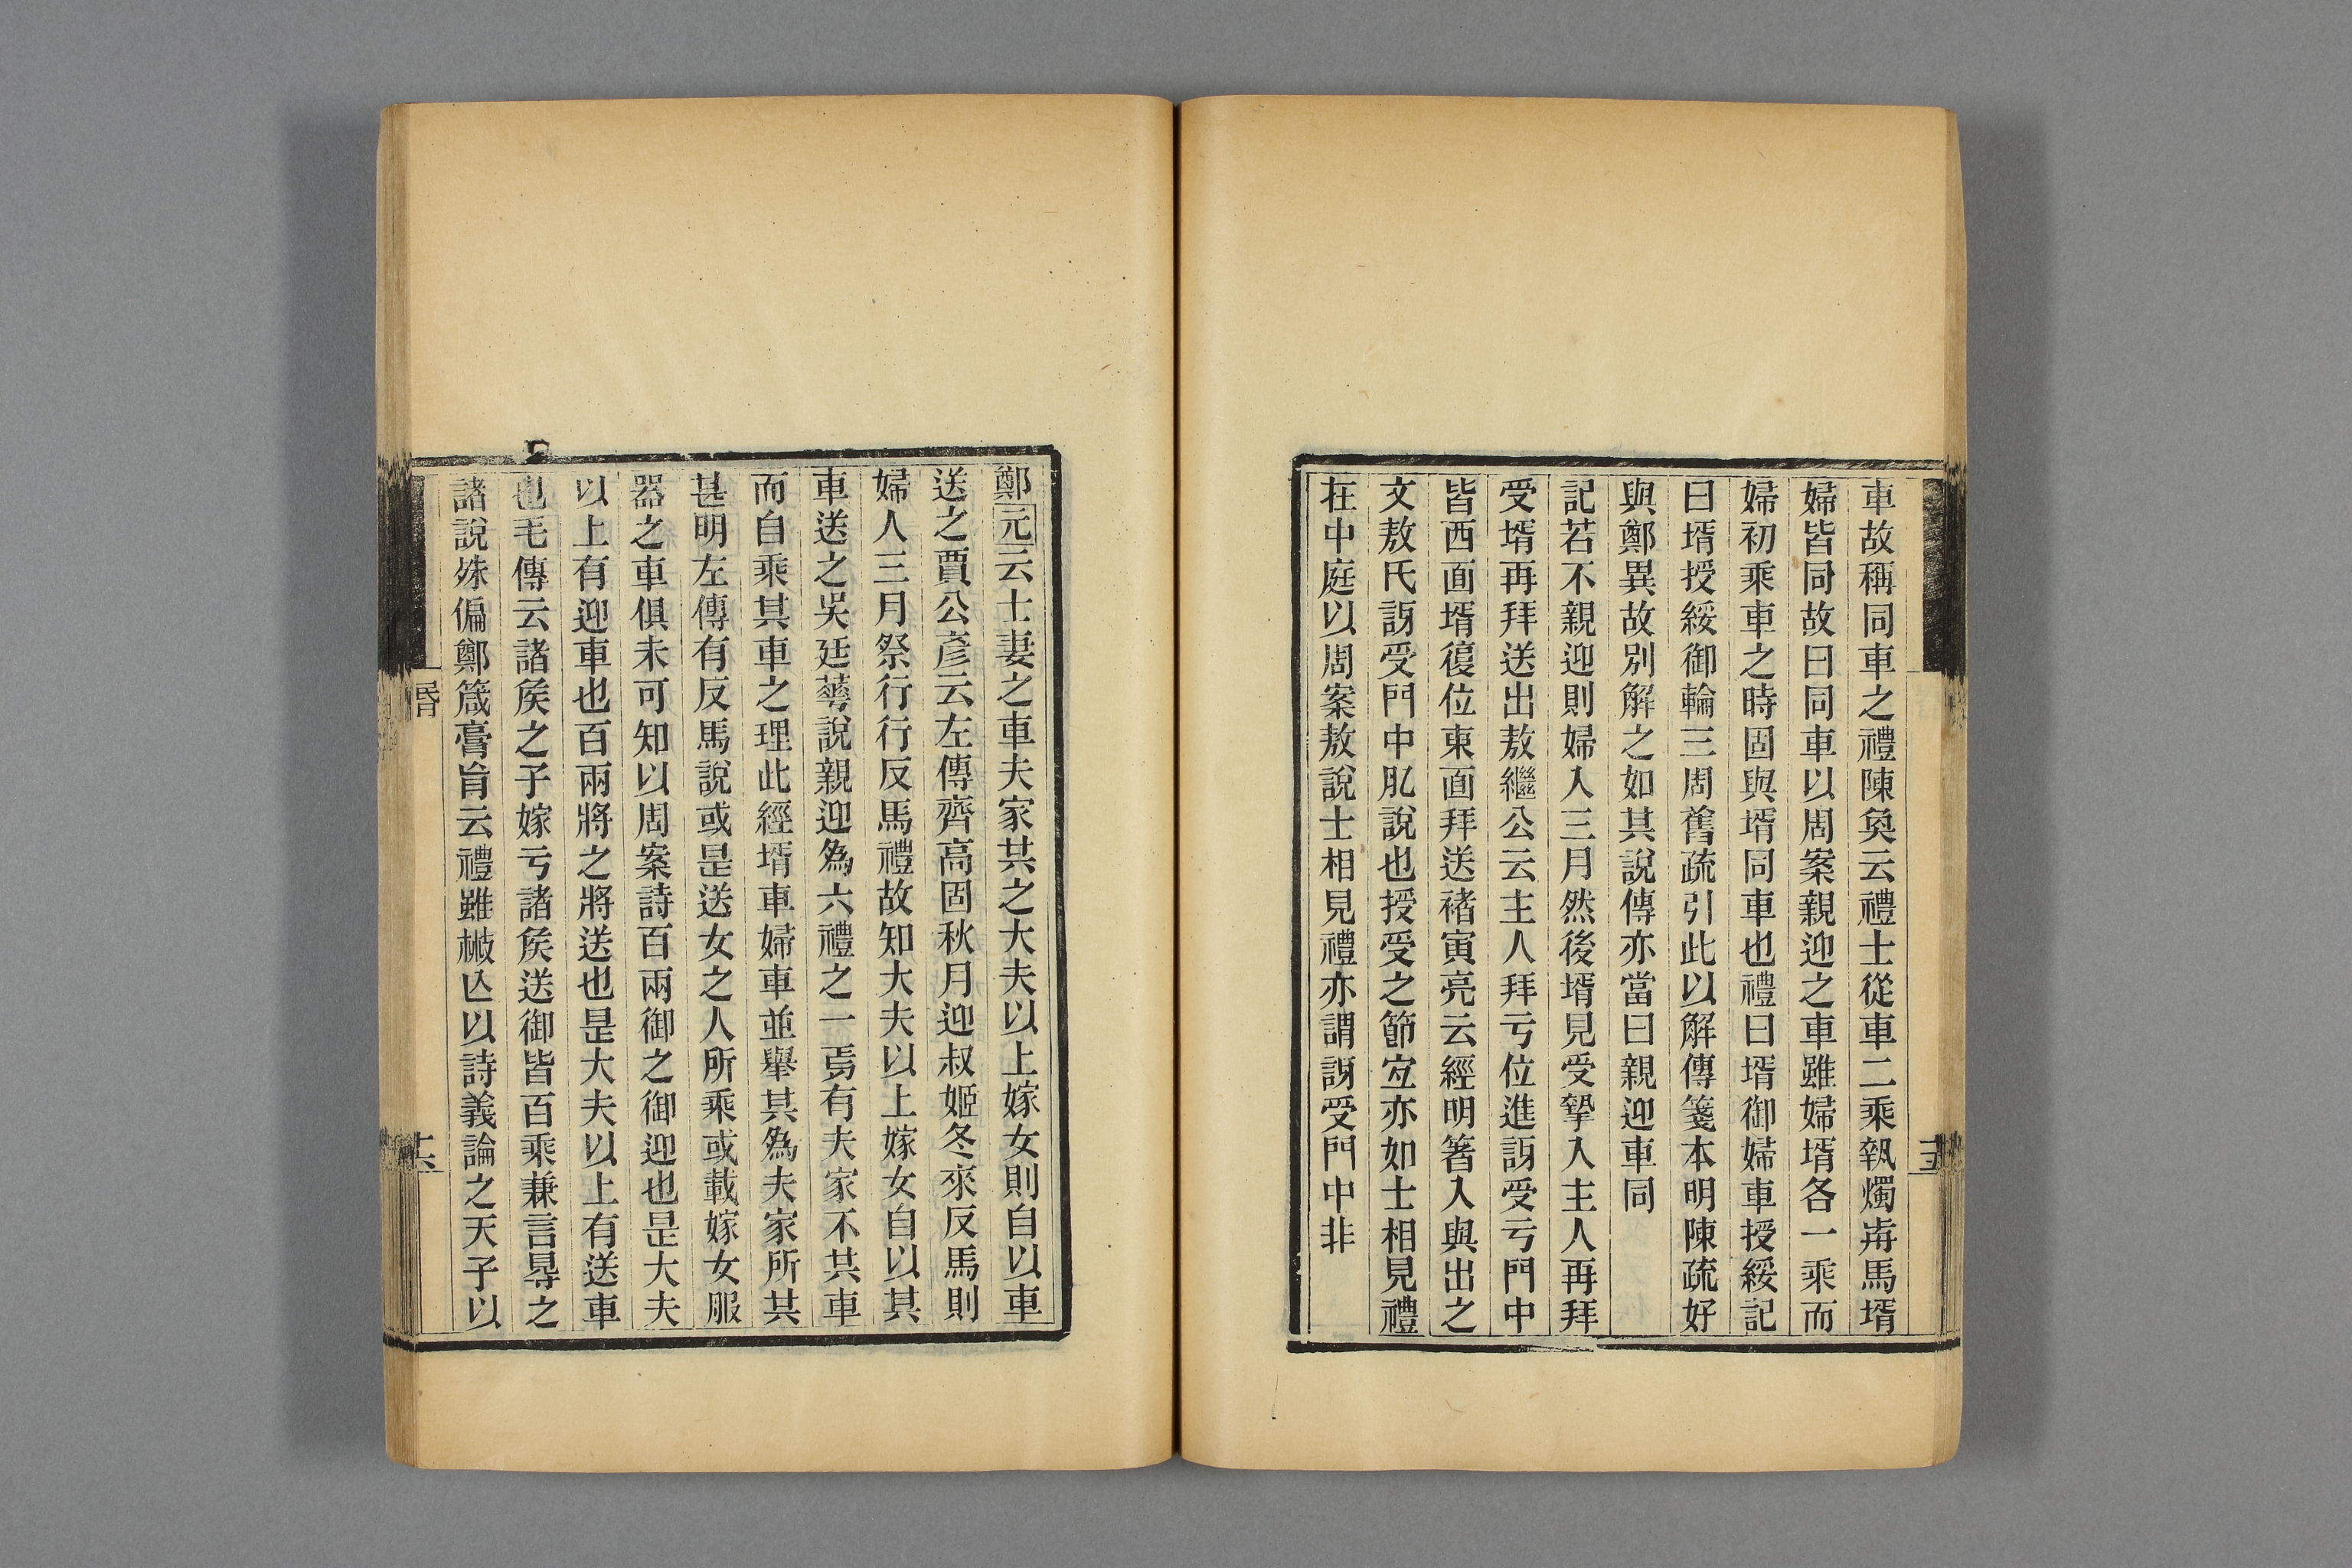 車故稱同車之禮陳奐云禮士從車二乘執燭歬馬壻
婦皆同故曰同車以周案親迎之車雖婦壻各一乘而
婦初乘車之時固與壻同車也禮曰壻御婦車授綏記
曰壻授綏御輪三周舊疏引此以解傳箋本明陳疏好
與鄭異故別解之如其說傳亦當曰親迎車同
記若不親迎則婦入三月然後壻見受摯入主人再拜
受壻再拜送出敖繼公云主人拜亏位進訝受亏門中
皆西面壻復位東面拜送褚寅亮云經明箸入與出之
文敖氏訝受門中肊說也授受之節宐亦如士相見禮
在中庭以周案敖說士相見禮亦謂訝受門中非
鄭元云士妻之車夫家共之大夫以上嫁女則自以車
送之賈公彥云左傳齊高固秋月迎叔姬冬來反馬則
婦人三月祭行行反馬禮故知大夫以上嫁女自以其
車送之吳廷華說親迎為六禮之一焉有夫家不共車
而自乘其車之理此經壻車婦車並舉其為夫家所共
甚明左傳有反馬說或昰送女之人所乘或載嫁女服
器之車俱未可知以周案詩百兩御之御迎也昰大夫
以上有迎車也百兩將之將送也昰大夫以上有送車
也毛傳云諸矦之子嫁亏諸矦送御皆百乘兼言㝵之
諸說殊偏鄭箴膏肓云禮雖㪔亾以詩義論之天子以
昬
十五
十六